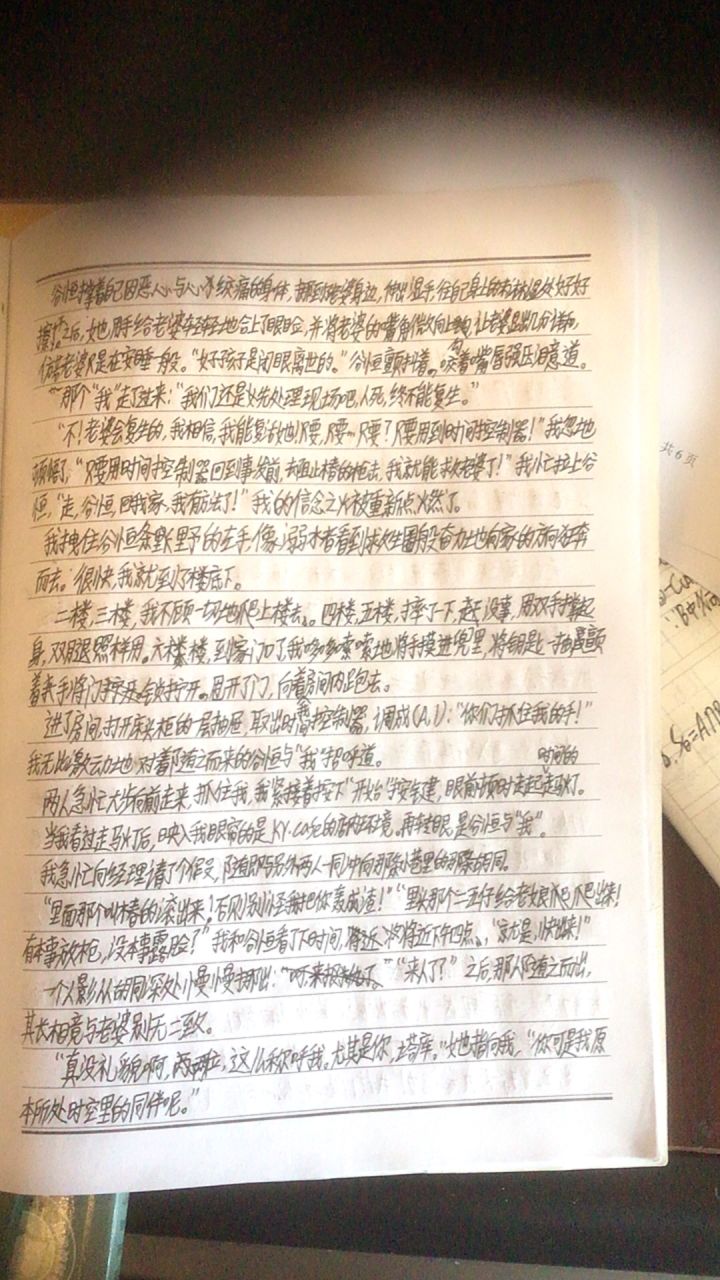 谷恒撑着自己因恶心与心绞痛的身体,挪到老婆身边,伸出湿手,往自己身上的
擦了。之后,她也用手给老婆轻轻地合上了眼睑,并将老婆的嘴角微微向上,让老婆显出几分
仿若老婆只是在安睡一般。“好孩子是闭眼离世的。”谷恒颤抖着。咬着嘴唇强压泪意道。
那个“我”走了过来:“我们还是先处理现场吧,人死,终不能复生。”
“不!老婆会复生的,我相信,我能复活她!只要,只要…只要?只要用到时间控制器!”我忽地
顿悟,“只要用时间控制器回到事发前,去阻止椿的枪击,我就能救老婆了!”我忙拉上谷
恒,“走,谷恒,回我家,我有办法了!”我的信念之火被重新点燃了。
我拽住谷恒的左手,像溺水者看到求生圈般奋力地向家的方向狂奔
而去。很快,我就到了楼底下。
二楼,三楼,我不顾一切地爬上楼去。四楼,五楼,摔了一下,没事,用双手撑起
身,双腿照样用。六楼,到家门口了,我哆哆嗦嗦地将手摸进兜里,将钥匙一抽,颤
着手将门拧开。甩开了门,向着房间内跑去。
进了房间,打开床头柜的一层抽屉,取出时间控制器,调成(A,1):“你们抓住我的手!”
我无比激动地对着随之而来的谷恒与“我”招呼道。
时间的
两人急忙大步向前走来,抓住我,我紧接着按下“开始”按键,眼前顿时走起走马灯。
当我看过走马灯后,映入我眼帘的是KY.cafe的店内环境,再转眼,是谷恒与“我”。
我急忙向经理请了个假,随即与另外两人一同冲向那条小巷里的那条胡同。
“里面那个叫椿的滚出来,否则别怪我把你轰成渣!”“里头那个二五仔给老娘爬,爬出来!
有本事放枪,没本事露脸?”我和谷恒看了下时间,将近下午四点,“就是,快出来!”
一个人影从胡同深处慢慢挪出:“啊,来了。”“来人了?”之后,那人随之而出,
其长相竟与老婆别无二致。
“真没礼貌啊,两位,这么称呼我。尤其是你,塔库。”她指向我,“你可是我原
本所处时空里的同伴呢。”
共6页